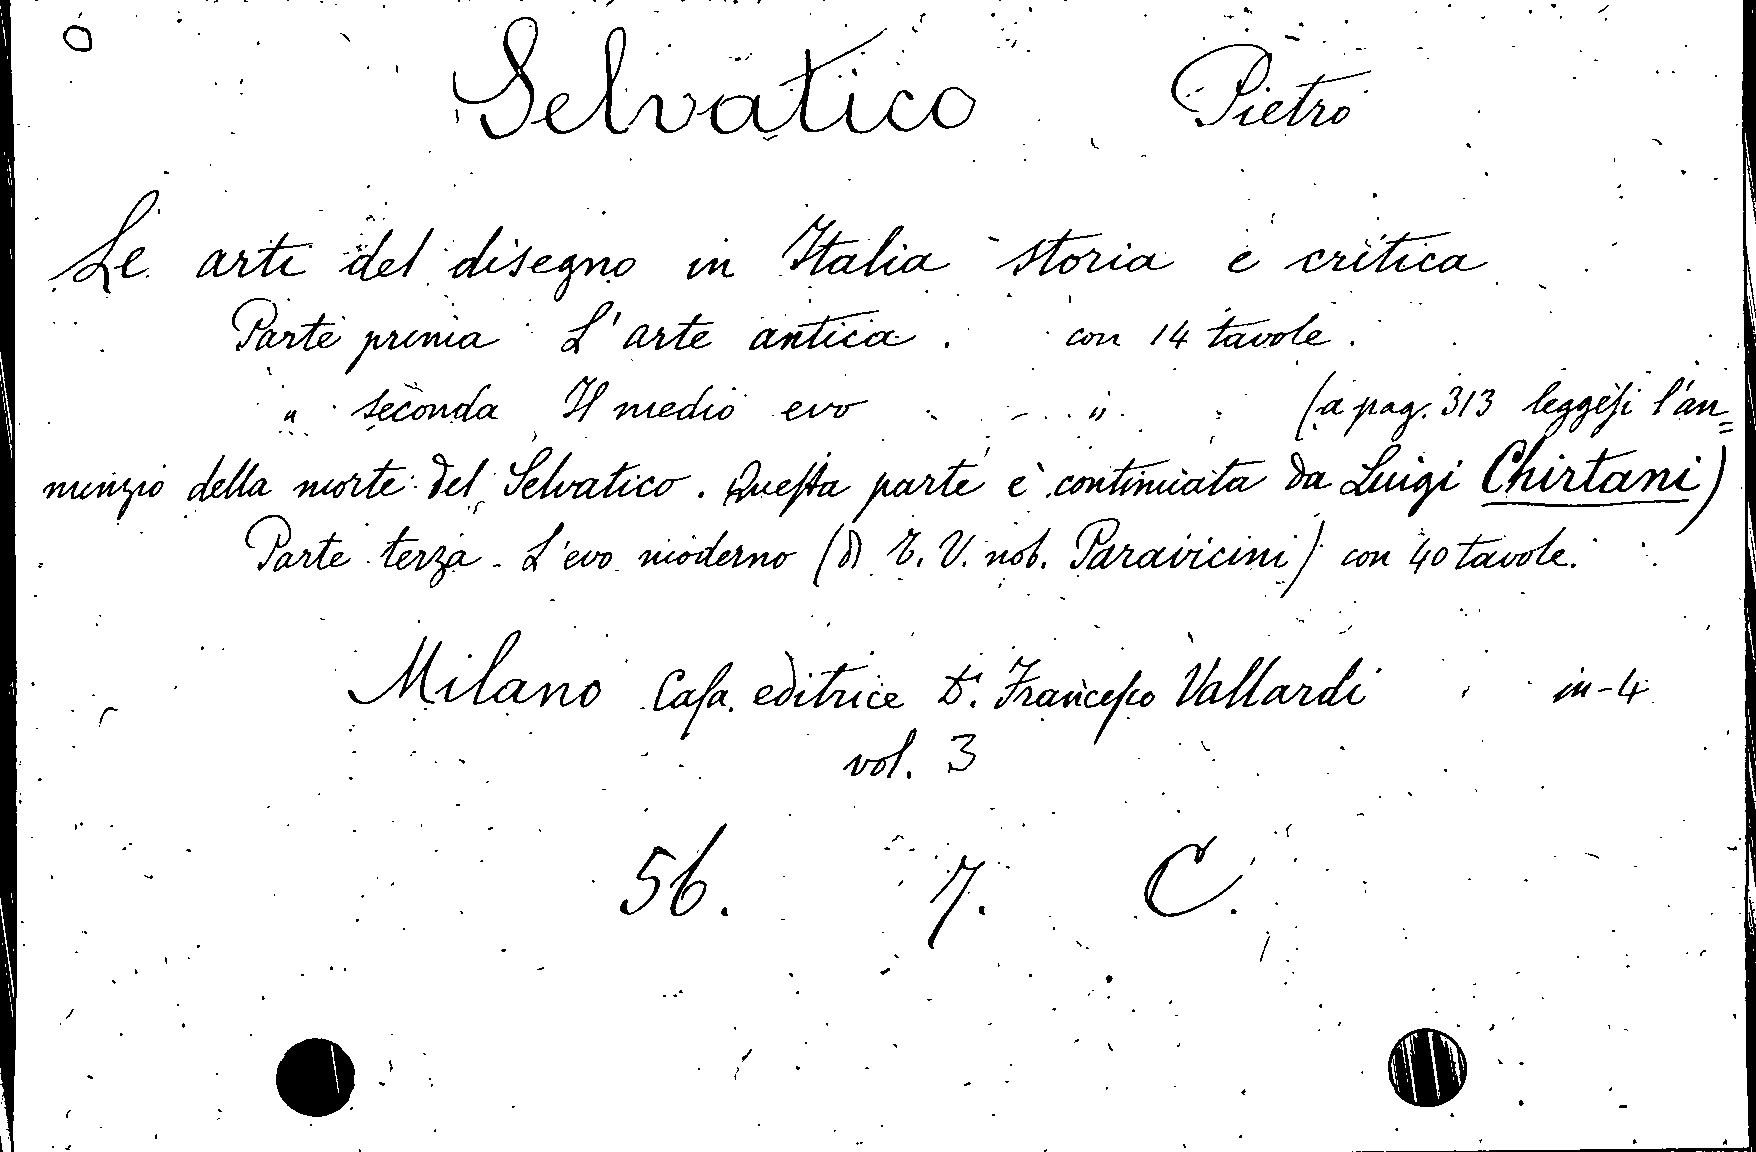 Selvatico Pietro
Le arti del disegno in Italia storia e critica
Parte prima L'arte antica . con 14 tavole .
" seconda Il medio evo " (a pag. 313 leggesi l'an=
nunzio della morte del Selvatico . Questa parte è continuata da Luigi Chirtani)
Parte terza - L'evo moderno (di T. V. nob. Paravicini) con 40 tavole.
Milano Casa editrice Dr. Francesco Vallardi in-4
vol. 3
56. 7. C.